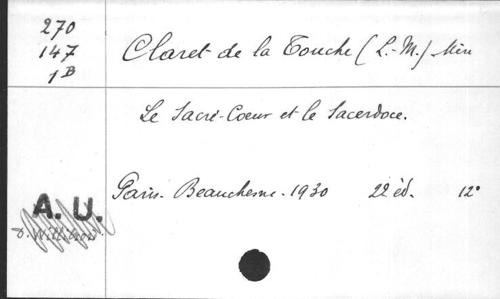 270
147
1B
Claret de la Touche (L.-M.) Mère
Le Sacré-Coeur et le Sacerdoce.
Paris. Beauchesne. 1930 22 éd. 12°
A. U.
D. Willibrord.